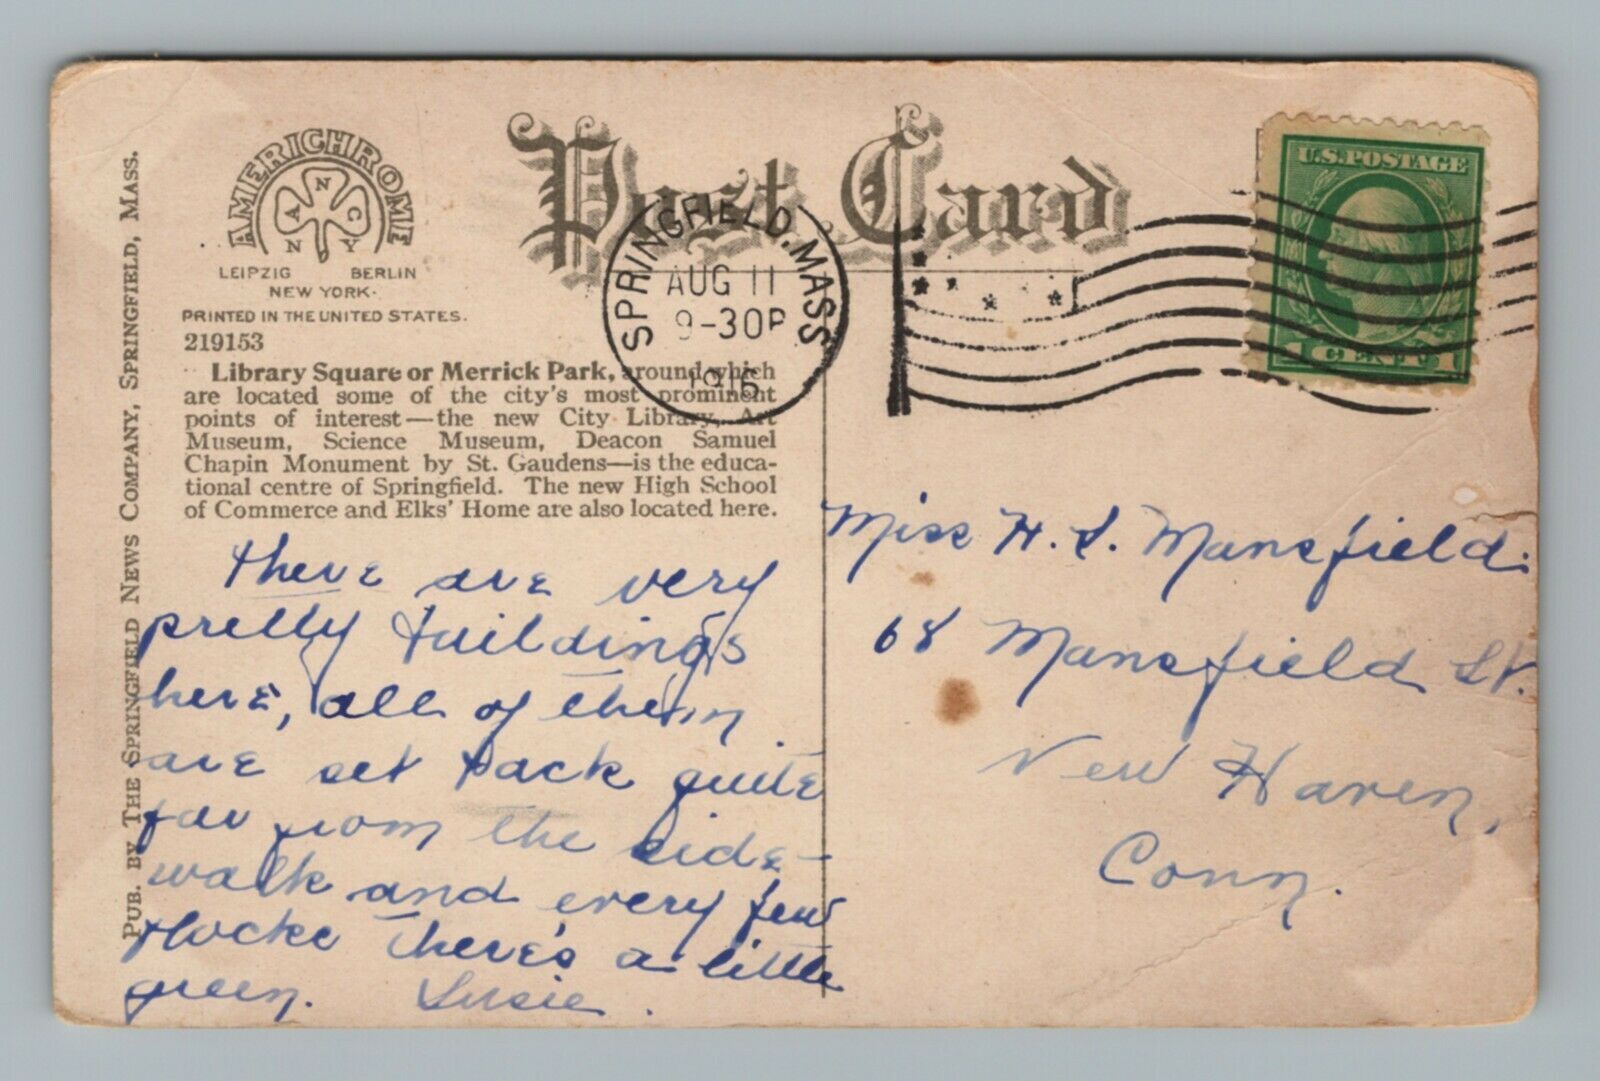 PUB. BY THE SPRINGFIELD NEWS COMPANY, SPRINGFIELD, MASS.
AMERICHROME
N
A C
N Y
LEIPZIG BERLIN
NEW YORK.
PRINTED IN THE UNITED STATES.
219153
Post Card
SPRINGFIELD, MASS.
AUG 11
9-30P
1916
U.S. POSTAGE
1 CENT 1
Library Square or Merrick Park, around which
are located some of the city's most prominent
points of interest—the new City Library, Art
Museum, Science Museum, Deacon Samuel
Chapin Monument by St. Gaudens—is the educa-
tional centre of Springfield. The new High School
of Commerce and Elks' Home are also located here.
There are very
pretty buildings
here, all of them
are set back quite
far from the side-
walk and every few
blocks there's a little
green. Susie.
Miss H. S. Mansfield.
68 Mansfield St.
New Haven,
Conn.